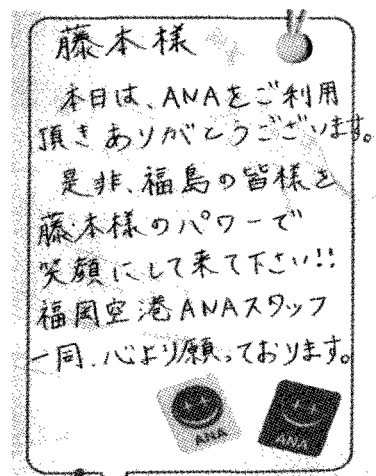 藤本様
本日は、ANAをご利用
頂きありがとうございます。
是非、福島の皆様を
藤本様のパワーで
笑顔にして来て下さい!!
福岡空港ANAスタッフ
一同、心より願っております。
ANA
ANA